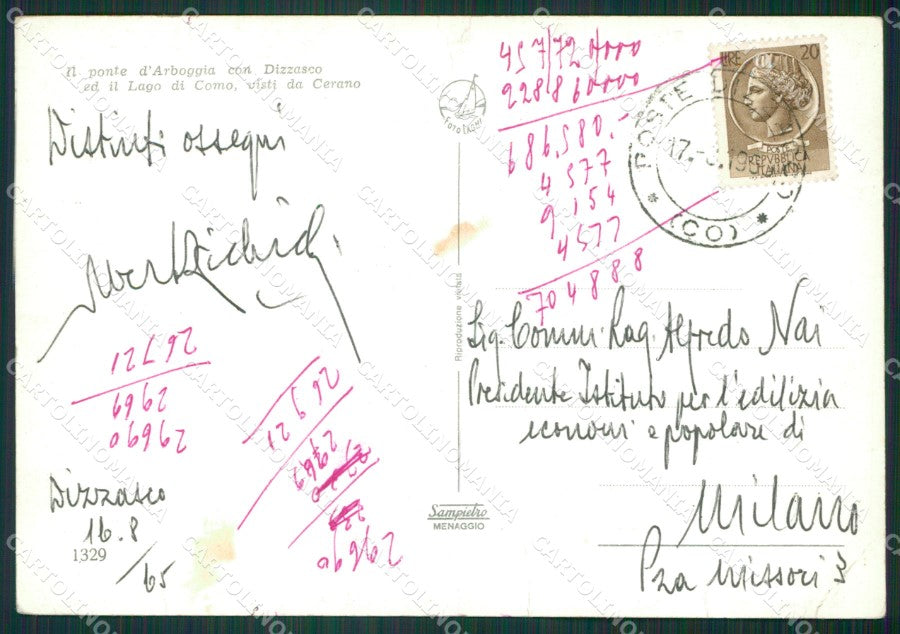 Il ponte d'Arboggia con Dizzasco
ed il Lago di Como, visti da Cerano
Distinti ossequi
Dizzasco
16.8
/65
1329
26721
2969
29690
26721
2969
29690
Riproduzione vietata
Sampietro
MENAGGIO
FOTO
686.580.-
4577
9154
4577
704888
LIRE 20
REPVBBLICA
ITALIANA
POSTE
17.
(CO)
Sig. Comm. Rag. Alfredo Nai
Presidente Istituto per l'edilizia
economi e popolare di
Milano
Pza Missori 3
CARTOLINOMANIA